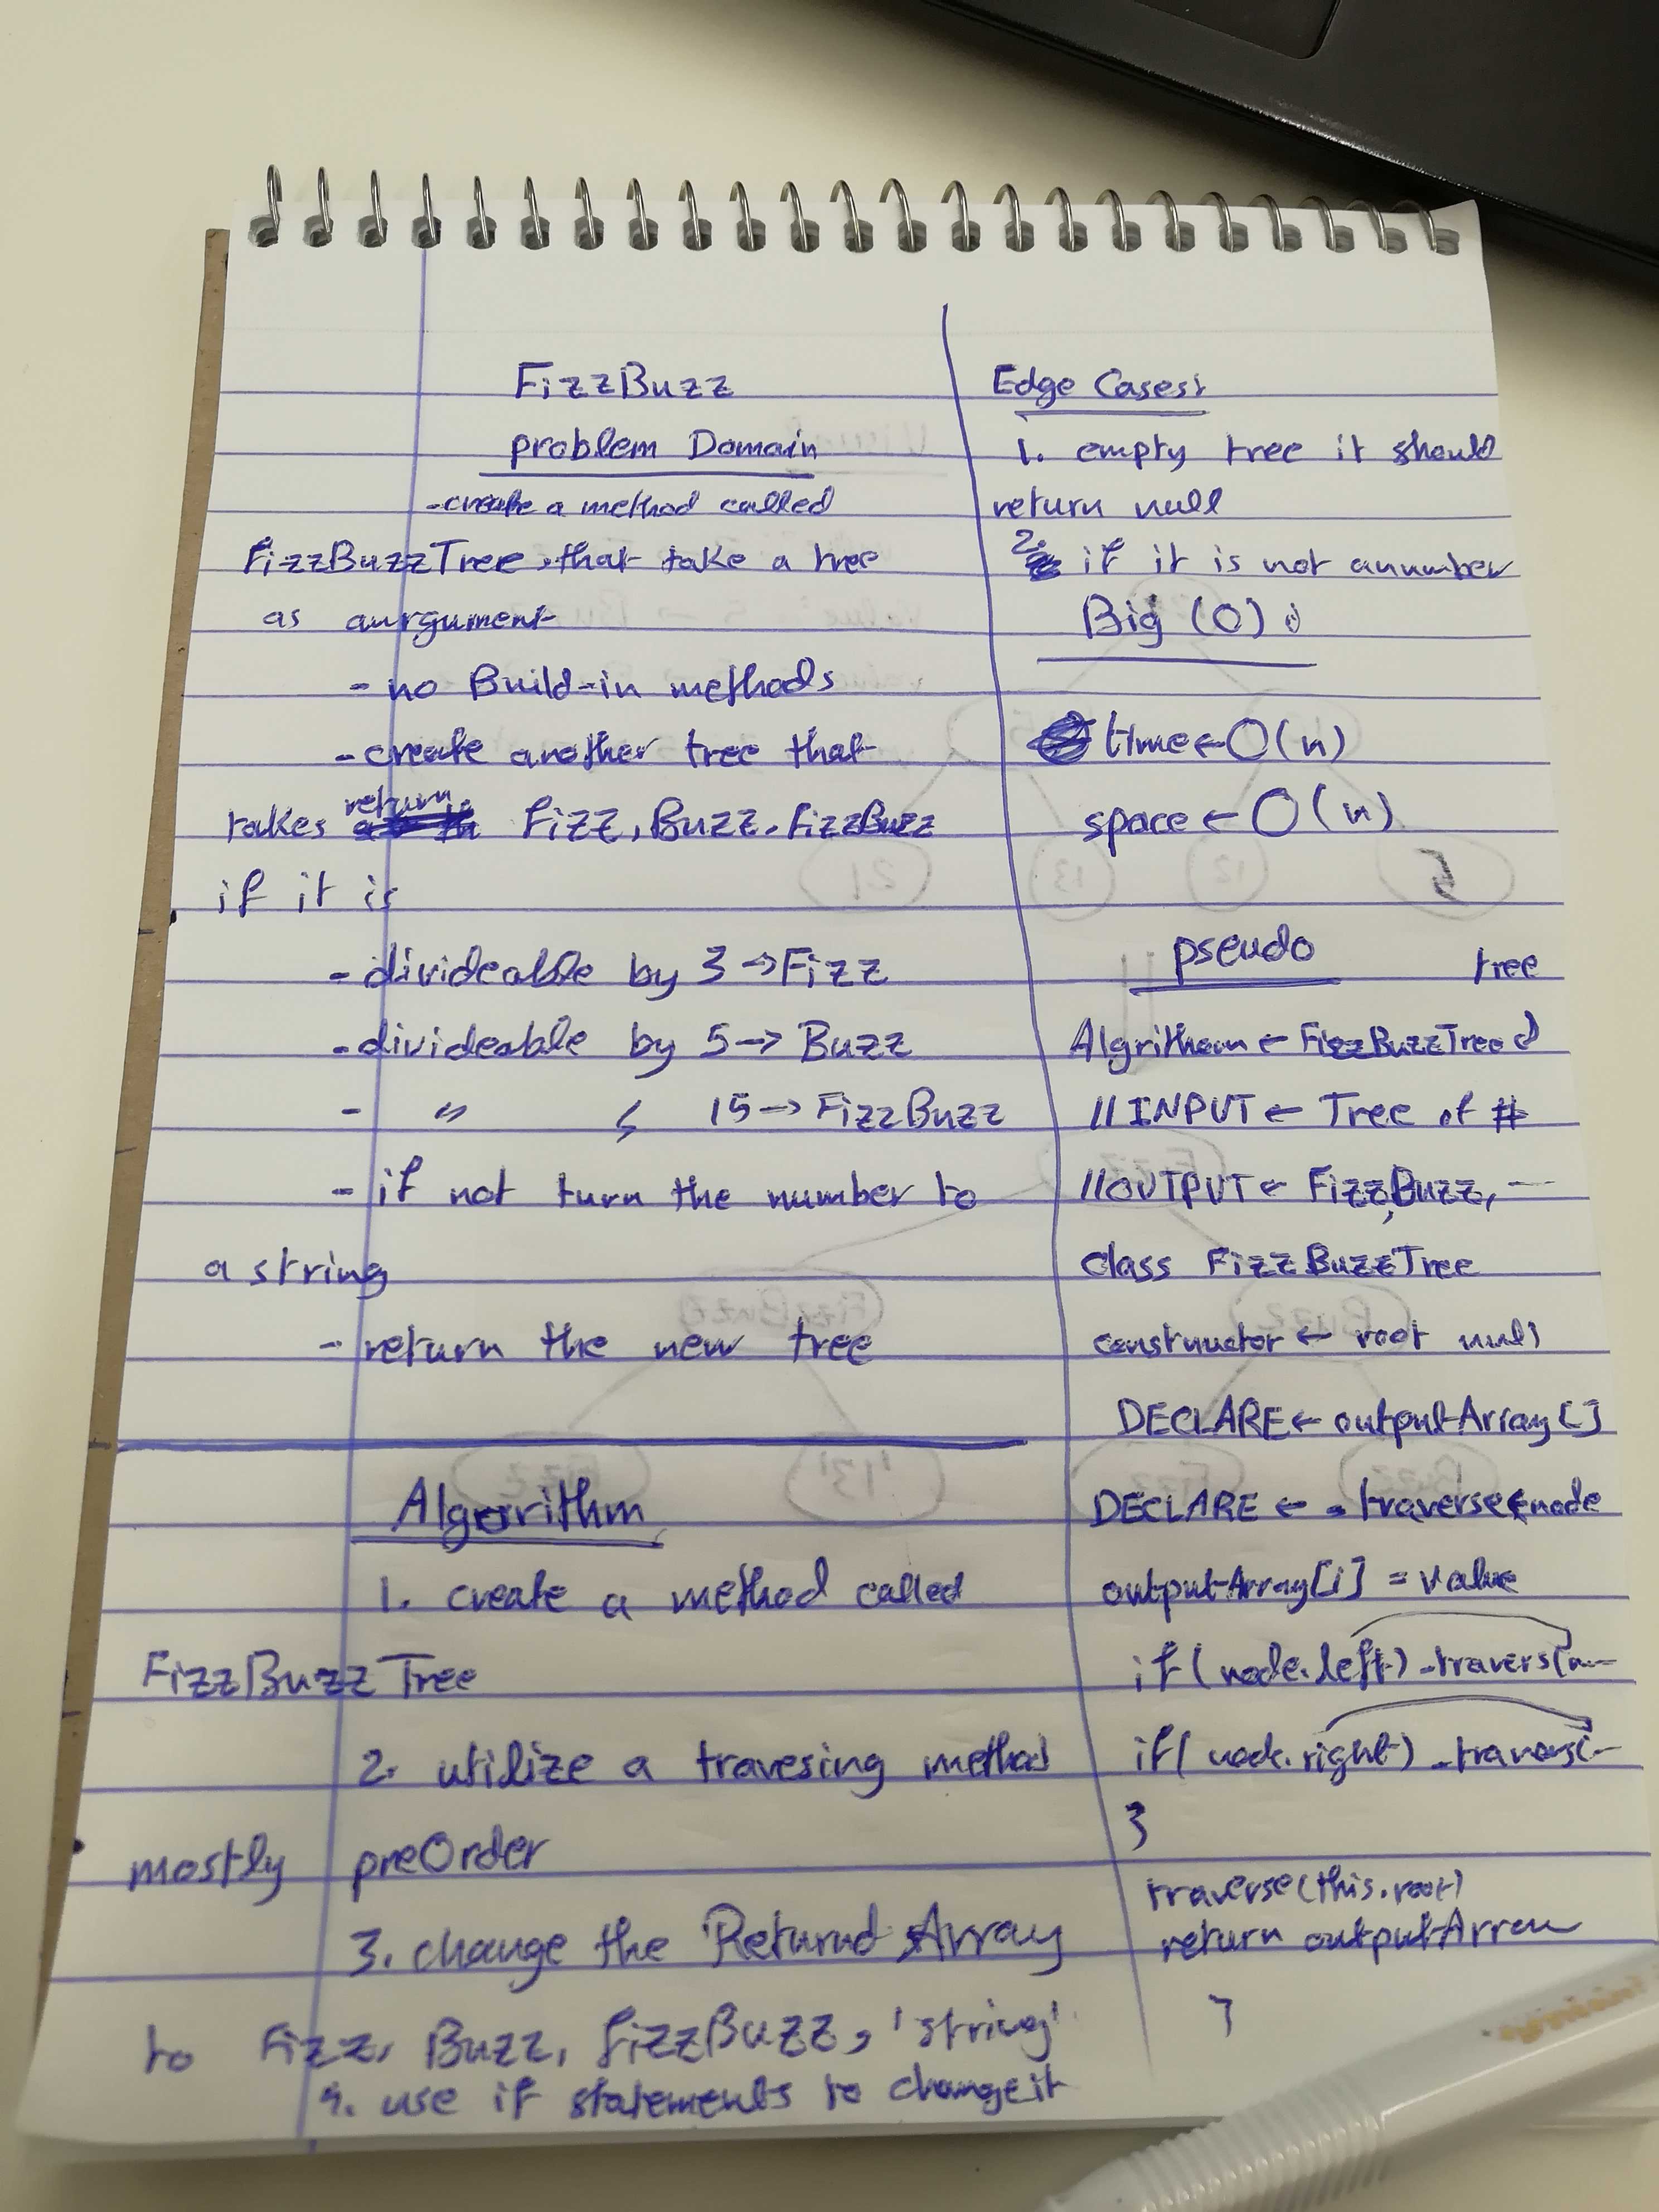 FizzBuzz
problem Domain
- create a method called
FizzBuzzTree, that take a tree
as aurgument
- no Build-in methods
- create another tree that
takes return Fizz, Buzz, FizzBuzz
if it is
- divideable by 3 → Fizz
- divideable by 5 → Buzz
- " 15 → FizzBuzz
- if not turn the number to
a string
- return the new tree
Algorithm
1. create a method called
FizzBuzzTree
2. utilize a travesing method
mostly preOrder
3. change the Returnd Array
to Fizz, Buzz, FizzBuzz, 'string'
4. use if statements to change it
Edge Cases:
1. empty tree it should
return null
2. if it is not anumber
Big (O):
time ← O(n)
space ← O(n)
pseudo
tree
Algrithem ← FizzBuzzTree
// INPUT ← Tree of #
// OUTPUT ← Fizz, Buzz, ---
class FizzBuzzTree
constructor ← root null
DECLARE ← outputArray[]
DECLARE ← _traverse(node
outputArray[i] = value
if (node.left) _travers(n---
if (node.right) _travers(--
}
traverse(this.root)
return outputArray
}